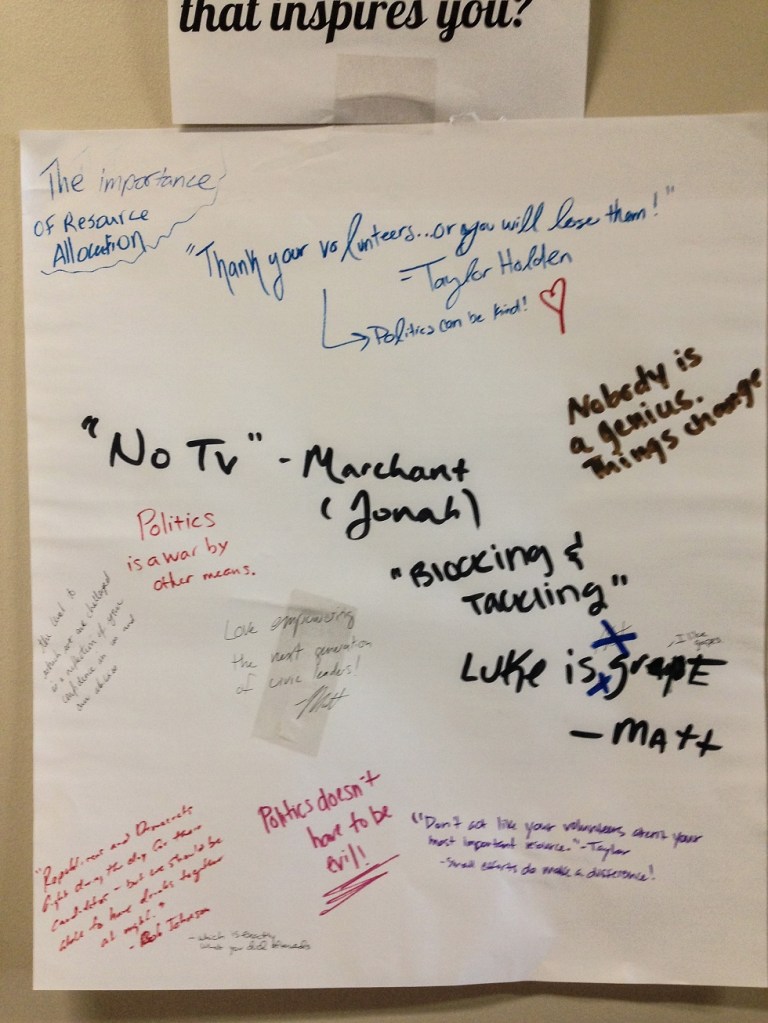 that inspires you?
The importance
OF Resource
Allocation
"Thank your volunteers...or you will lose them!"
-Taylor Holden
Politics can be kind!
Nobody is
a genius.
Things change
"No Tv" - Marchant
(Jonah)
Politics
is a war by
other means.
"Blocking &
Tackling"
the level to
which we are challenged
is a reflection of your
confidence in us and
our
Love empowering
the next generation
of civic leaders!
Matt
, I like
Luke is
- Matt
Politics doesn't
have to be
evil!
"Don't act like your volunteers aren't your
most important resource." -Taylor
-Small efforts do make a difference!
"Republicans and Democrats
fight during the day for their
candidates - but we should be
able to have drinks together
at night."
- Bob Johnson
- which is exactly
what you did